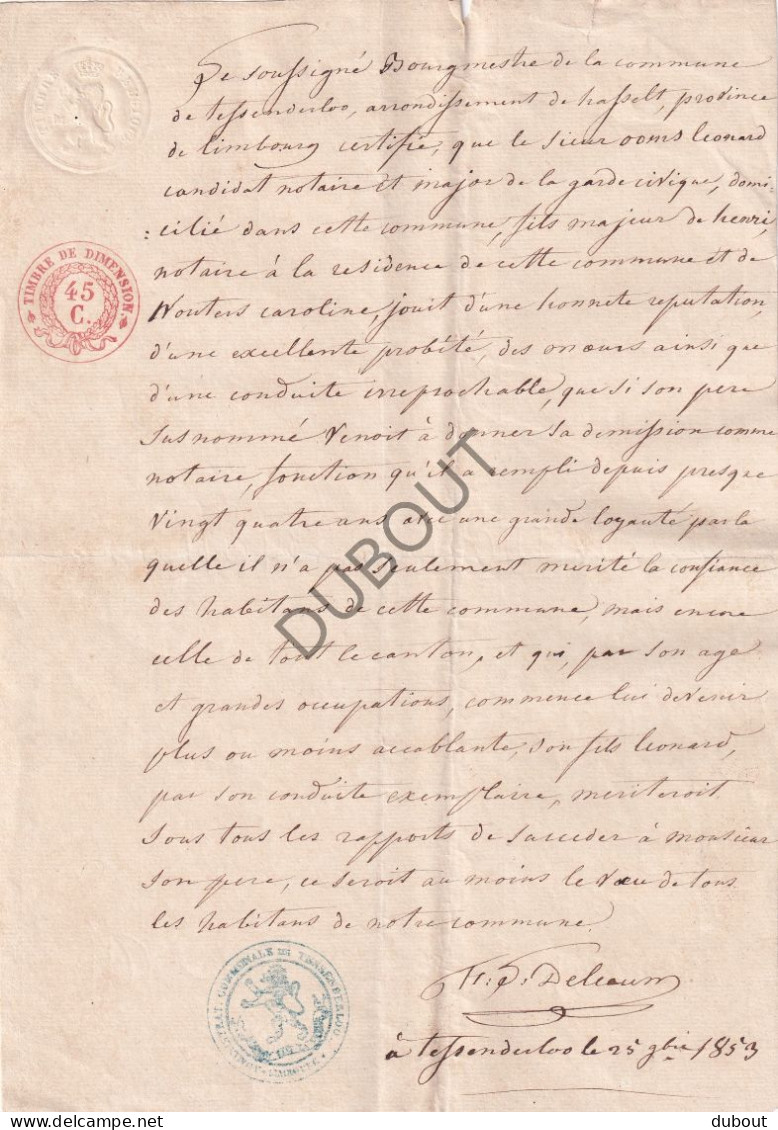 Je soussigné Bourgmestre de la commune
de tessenderloo, arrondissement de hasselt, province
de limbourg certifie, que le sieur ooms leonard
candidat notaire et major de la garde civique, domi:
:cilié dans cette commune, fils majeur de henri,
notaire à la residence de cette commune et de
Wouters caroline, jouit d'une honnete reputation,
d'une excellente probité, des mœurs ainsi que
d'une conduite irreprochable, que si son pere
susnommé venoit à donner sa demission comme
notaire, fonction qu'il a rempli depuis presque
vingt quatre ans avec une grande loyauté par la
quelle il n'a pas seulement merité la confiance
des habitans de cette commune, mais encore
celle de tout le canton, et qui, par son age
et grandes occupations, commence lui devenir
plus ou moins accablante, son fils leonard,
par son conduite exemplaire, meriteroit
sous tous les rapports de succeder à monsieur
son pere, ce seroit au moins le vœu de tous
les habitans de notre commune.
à tessenderloo le 25 9bre 1853
TIMBRE DE DIMENSION.
45
C.
COMMUNALE DE TESSENDERLOO
DUBOUT
www.delcampe.net
dubout